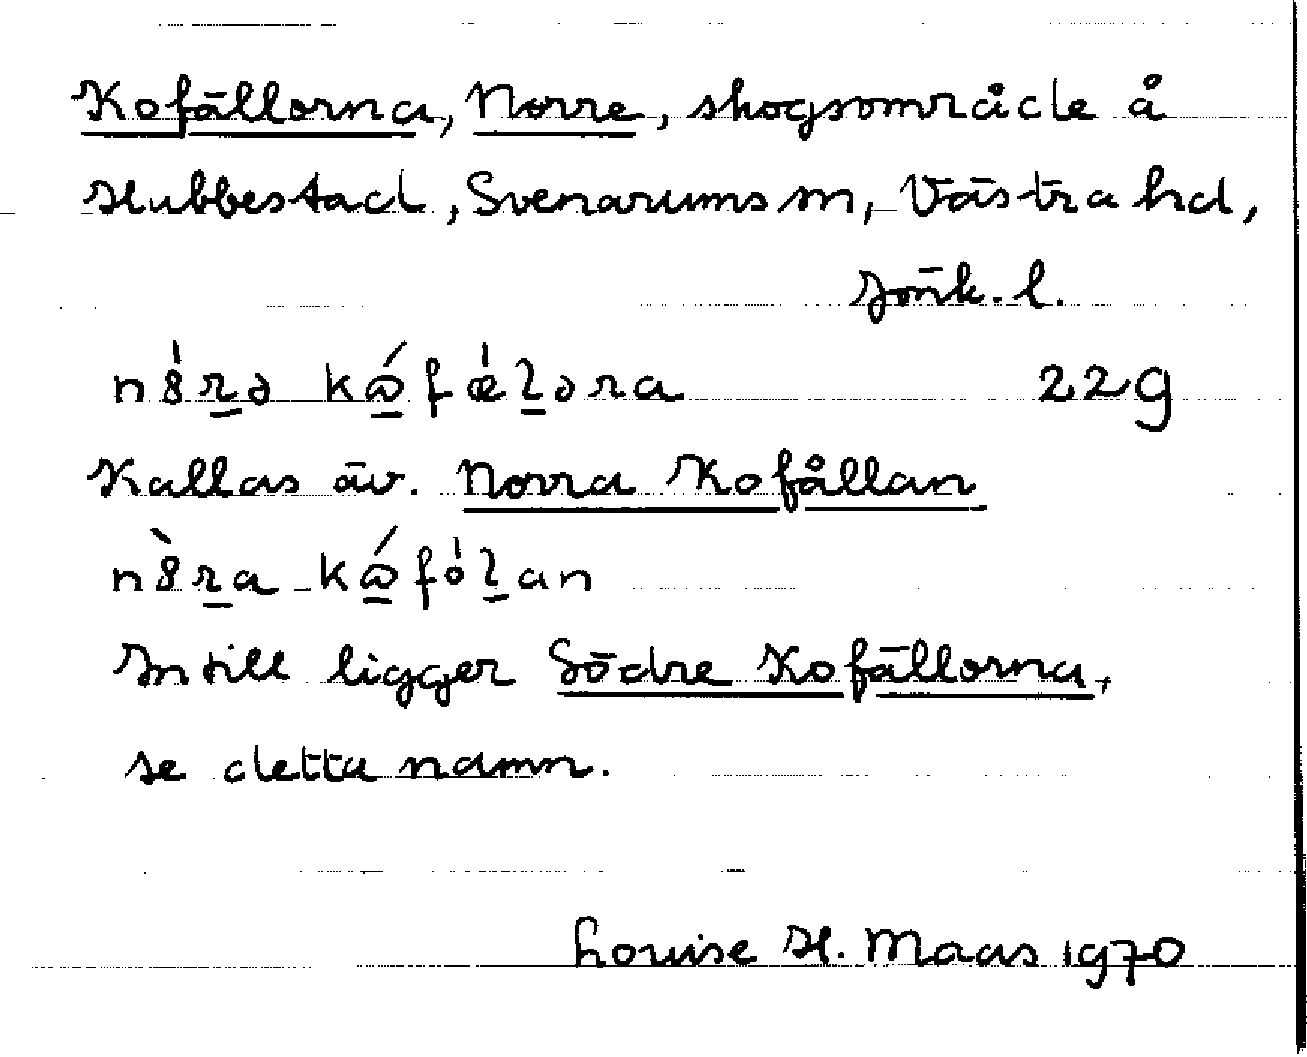 Kofällorna, Norre, skogsområde å
Hubbestad, Svenarums sn, Västra hd,
Jönk. l.
n8̀rə kɷ́fæ̀lərа 22g
Kallas äv. Norra Kofållan
n8̀ra kɷ́fòlan
Intill ligger Södre Kofällorna,
se detta namn.
Louise H. Maas 1970